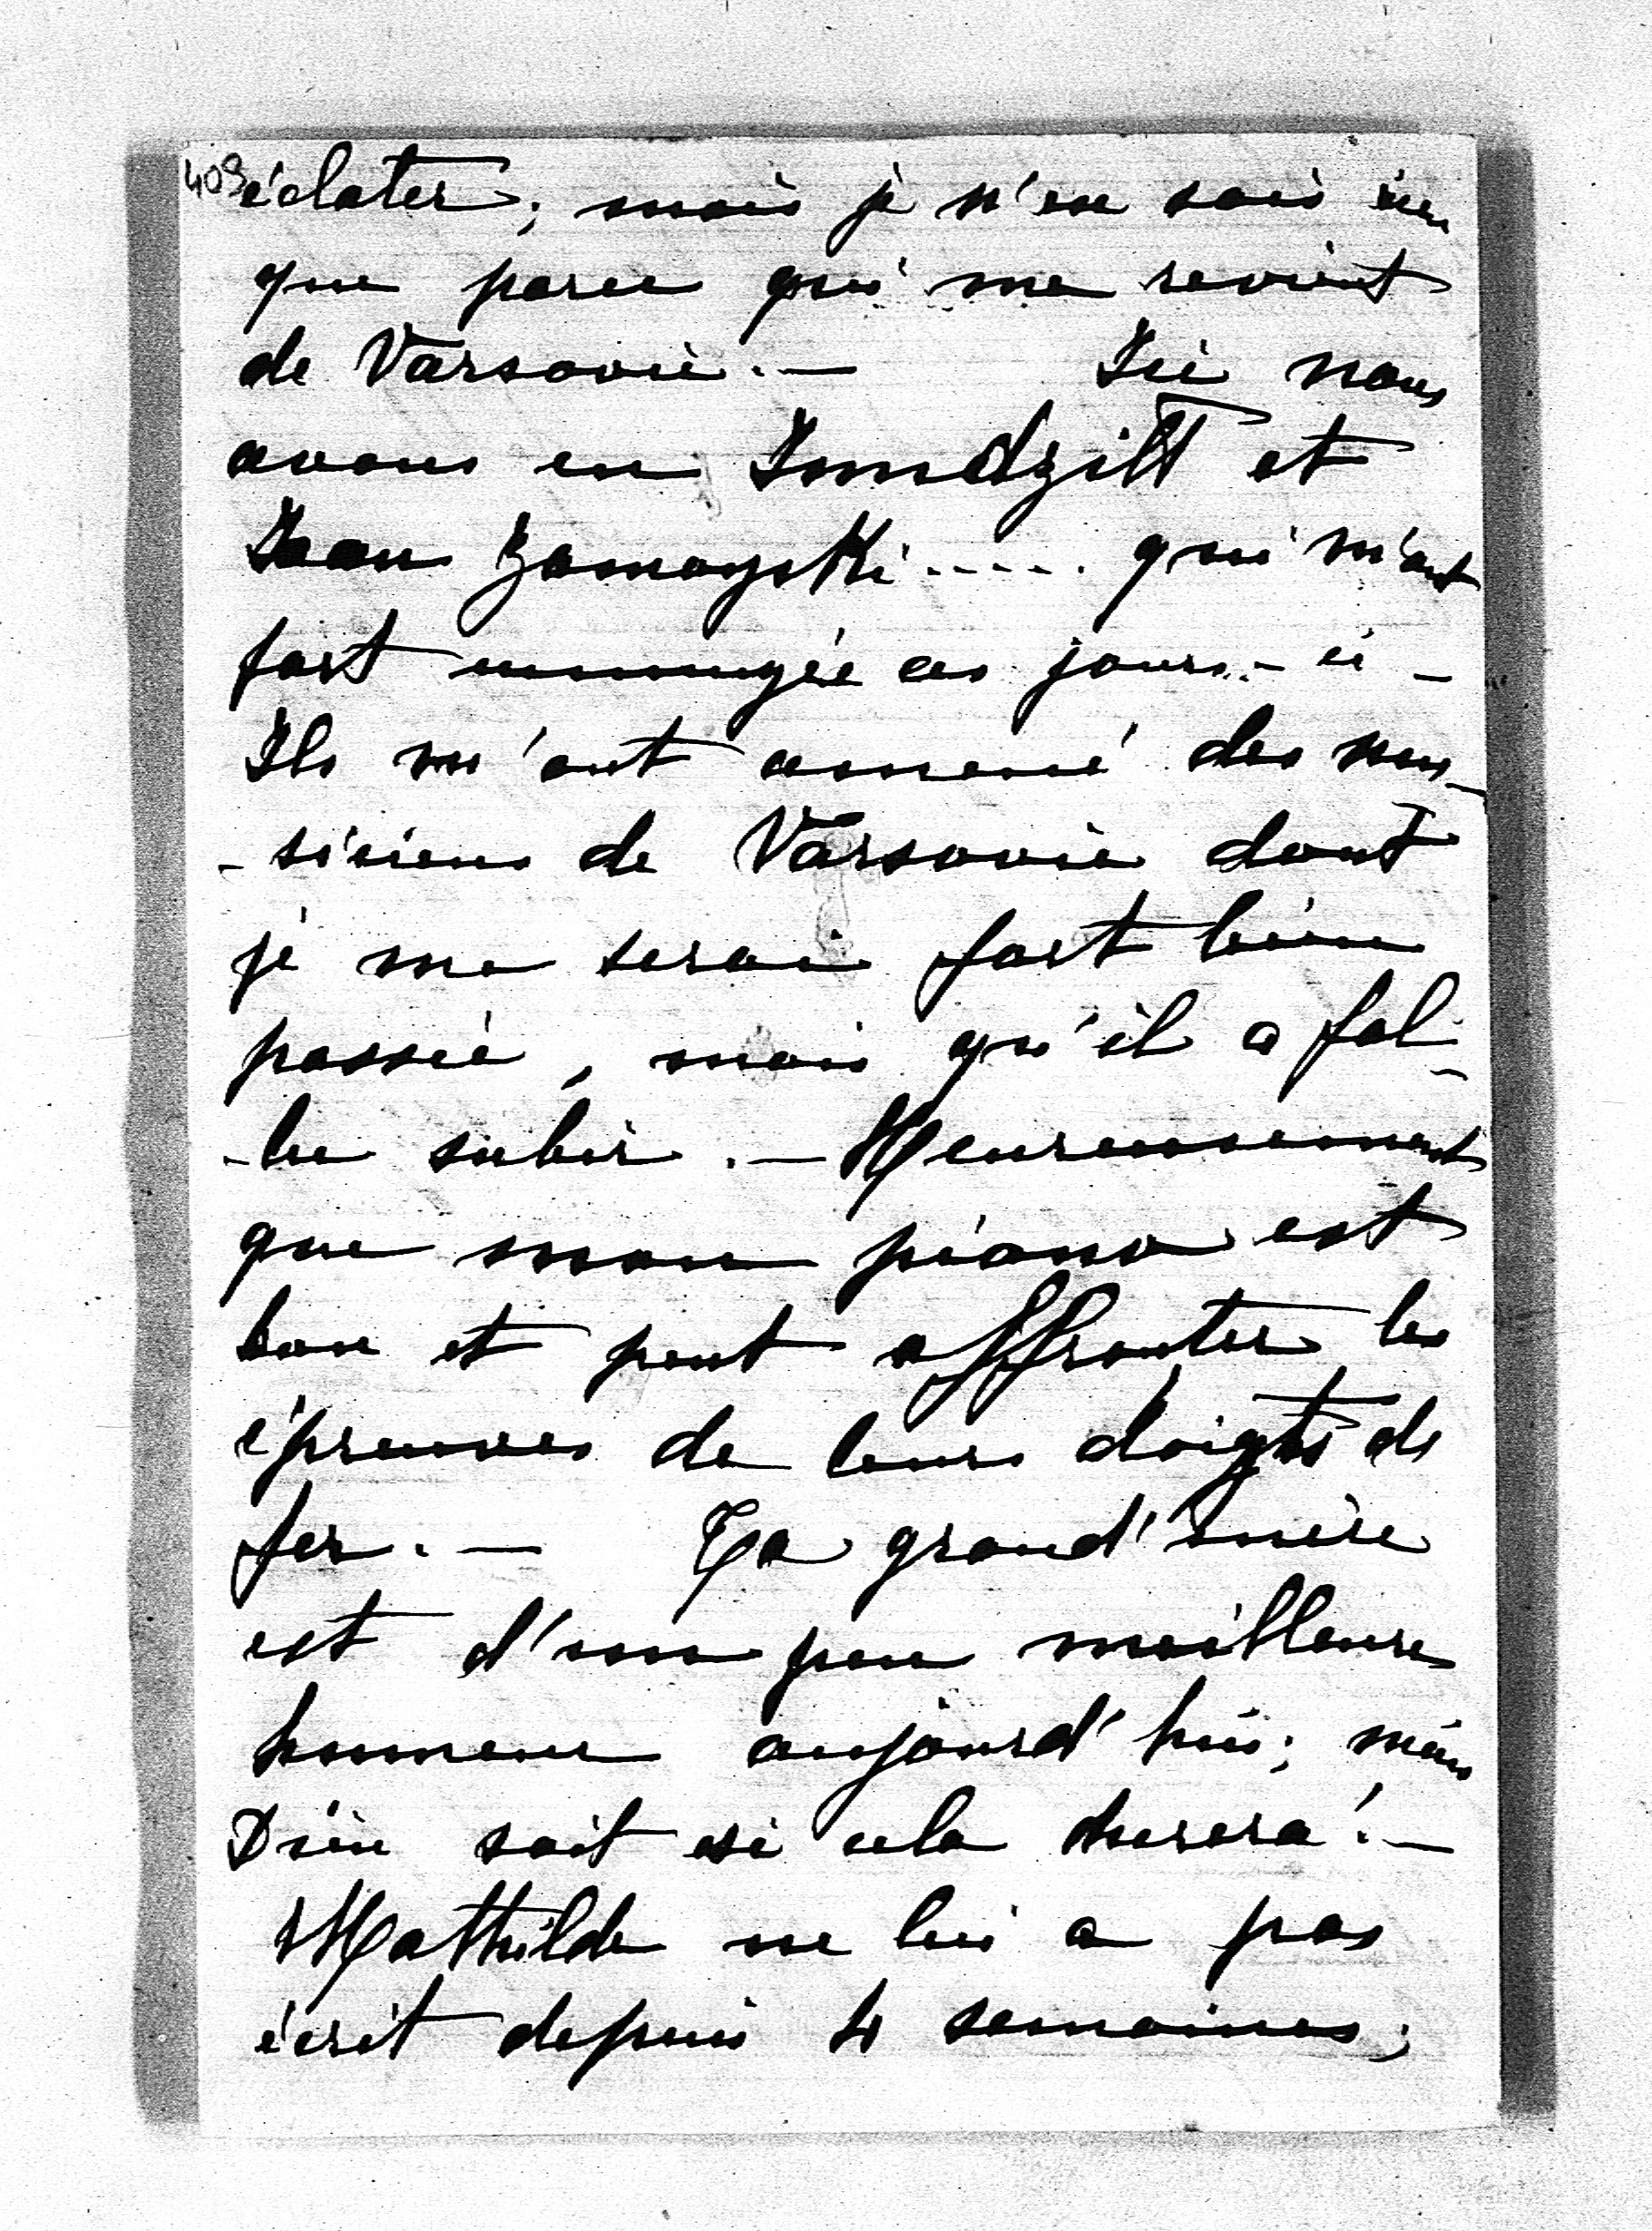 409
éclater; mais je n'en sais rien
que parce qui me revient
de Varsovie. — Ici nous
avons eu Jundzill et
Jean Zamoyski ..... qui m'ont
fort ennuyée ces jours-ci –
Ils m'ont amené des mu-
-siciens de Varsovie dont
je me serai fort bien
passée, mais qu'il a fal-
-lu subir. — Heureusement
que mon piano est
bon et peut affronter les
épreuves de leurs doigts de
fer. — Ta grand'mère
est d'un peu meilleure
humeur aujourd'hui; mais
Dieu sait si cela durera! —
Mathilde ne lui a pas
écrit depuis 4 semaines;